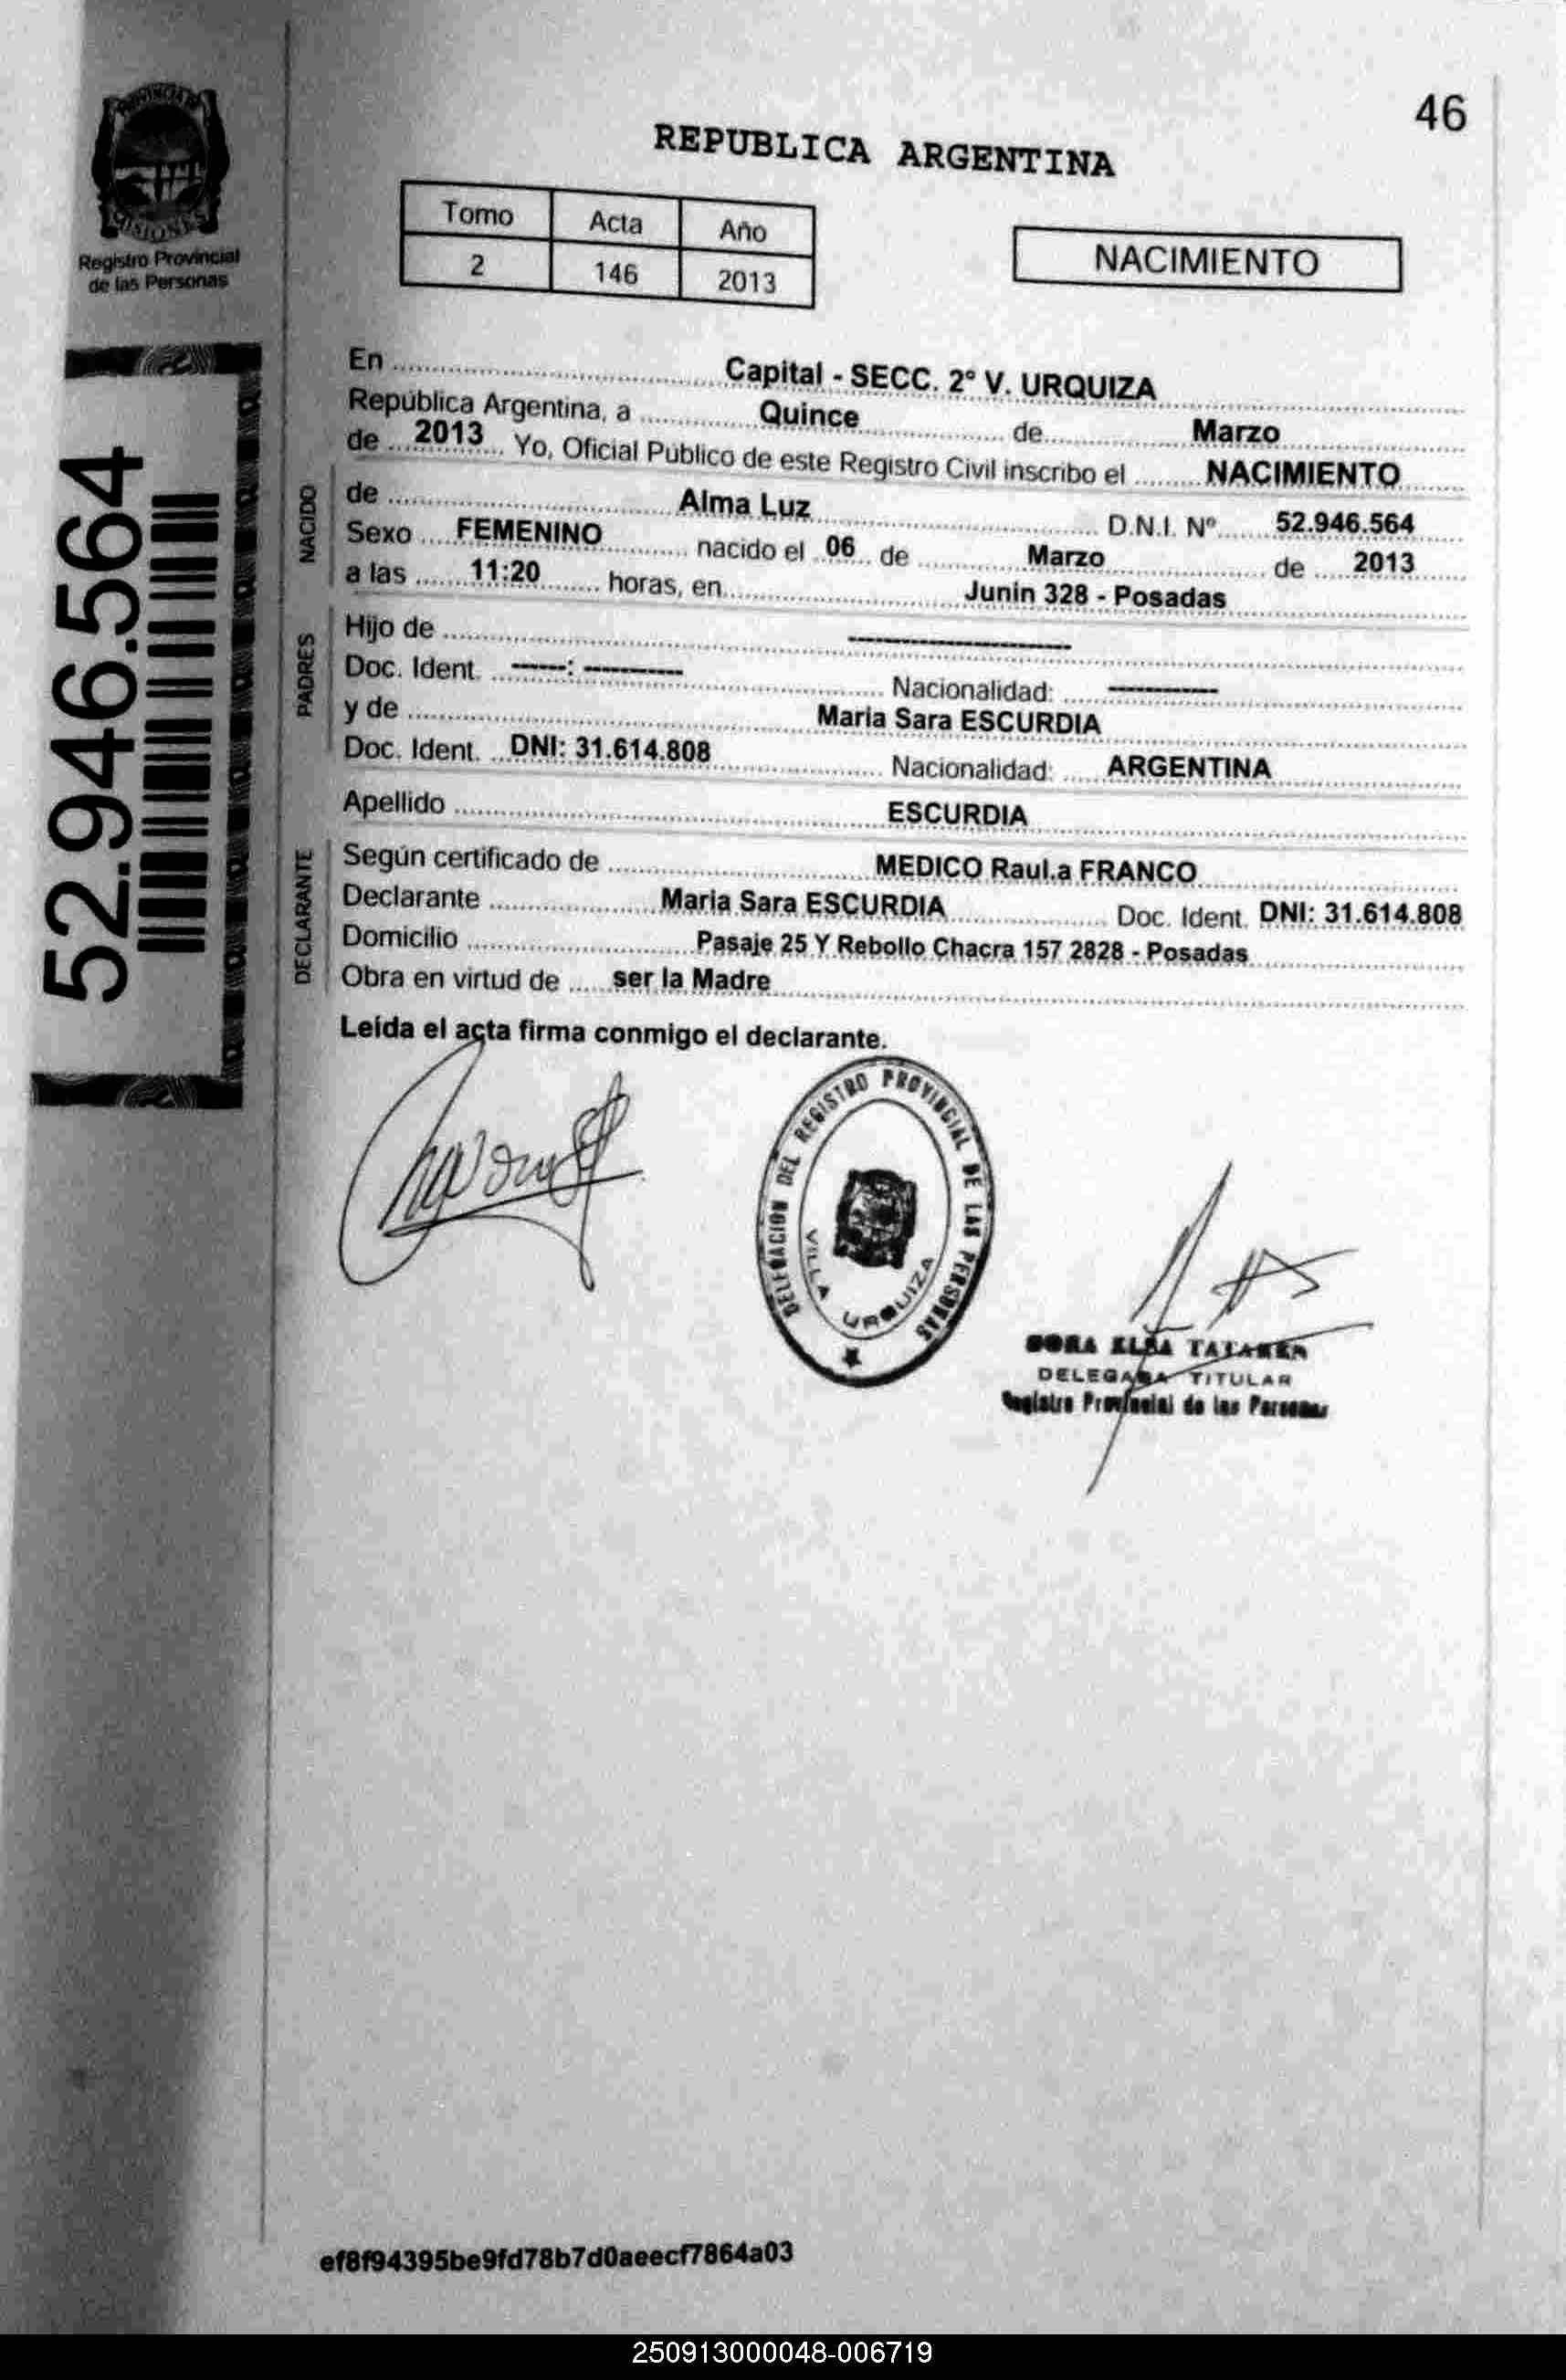 46
REPUBLICA ARGENTINA
PROVINCIA DE
MISIONES
Registro Provincial
de las Personas
Tomo Acta Año
2 146 2013
NACIMIENTO
52.946.564
En Capital - SECC. 2° V. URQUIZA
República Argentina, a Quince de Marzo
de 2013 Yo, Oficial Público de este Registro Civil inscribo el NACIMIENTO
NACIDO
de Alma Luz D.N.I. Nº 52.946.564
Sexo FEMENINO nacido el 06 de Marzo de 2013
a las 11:20 horas, en Junin 328 - Posadas
PADRES
Hijo de ----------
Doc. Ident. -----: ---------- Nacionalidad: ----------
y de Maria Sara ESCURDIA
Doc. Ident. DNI: 31.614.808 Nacionalidad: ARGENTINA
Apellido ESCURDIA
DECLARANTE
Según certificado de MEDICO Raul.a FRANCO
Declarante Maria Sara ESCURDIA Doc. Ident. DNI: 31.614.808
Domicilio Pasaje 25 Y Rebollo Chacra 157 2828 - Posadas
Obra en virtud de ser la Madre
Leída el acta firma conmigo el declarante.
DELEGACION DEL REGISTRO PROVINCIAL DE LAS PERSONAS
VILLA URQUIZA
DELEGADA TITULAR
Registro Provincial de las Personas
ef8f94395be9fd78b7d0aeecf7864a03
250913000048-006719